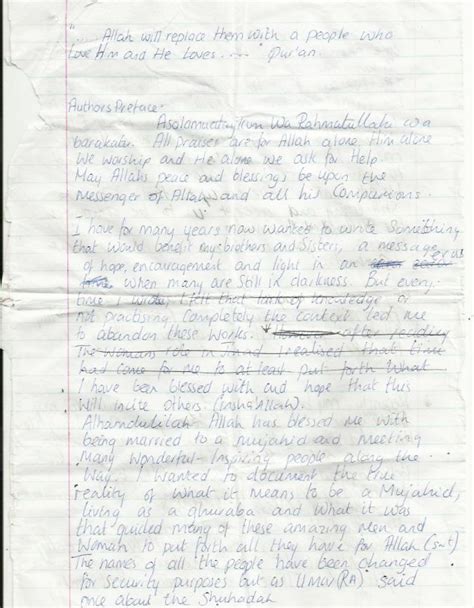 ".... Allah will replace them with a people who
Love Him and He Loves....." Qur'an.
Authors Preface.
Asalamualaykum Wa Rahmatullahi wa
barakatu. All praises are for Allah alone Him alone
We worship and He alone we ask for Help.
May Allahs peace and blessings be upon the
messenger of Allah and all his Companions.
I have for many years now wanted to write Something
that would benefit my brothers and Sisters, a message
of hope, encouragement and light in an era
when many are still in darkness. But every
time I I felt that lack of knowledge or
not practising completely the content led me
to abandon these works. after reading
The Womans role in Jihad I realised that time
had come for me to at least put forth what
I have been blessed with and hope that this
Will incite others (insha'Allah).
Alhamdulilah Allah has blessed me with
being married to a mujahid and meeting
Many Wonderful inspiring people along the
Way. I wanted to document the true
reality of what it means to be a Mujahid,
living as a ghuraba and what it was
that guided many of these amazing men and
Woman to put forth all they have for Allah (s-t)
The names of all the people have been changed
for security purposes but as Umar (RA) said
once about the Shuhadah